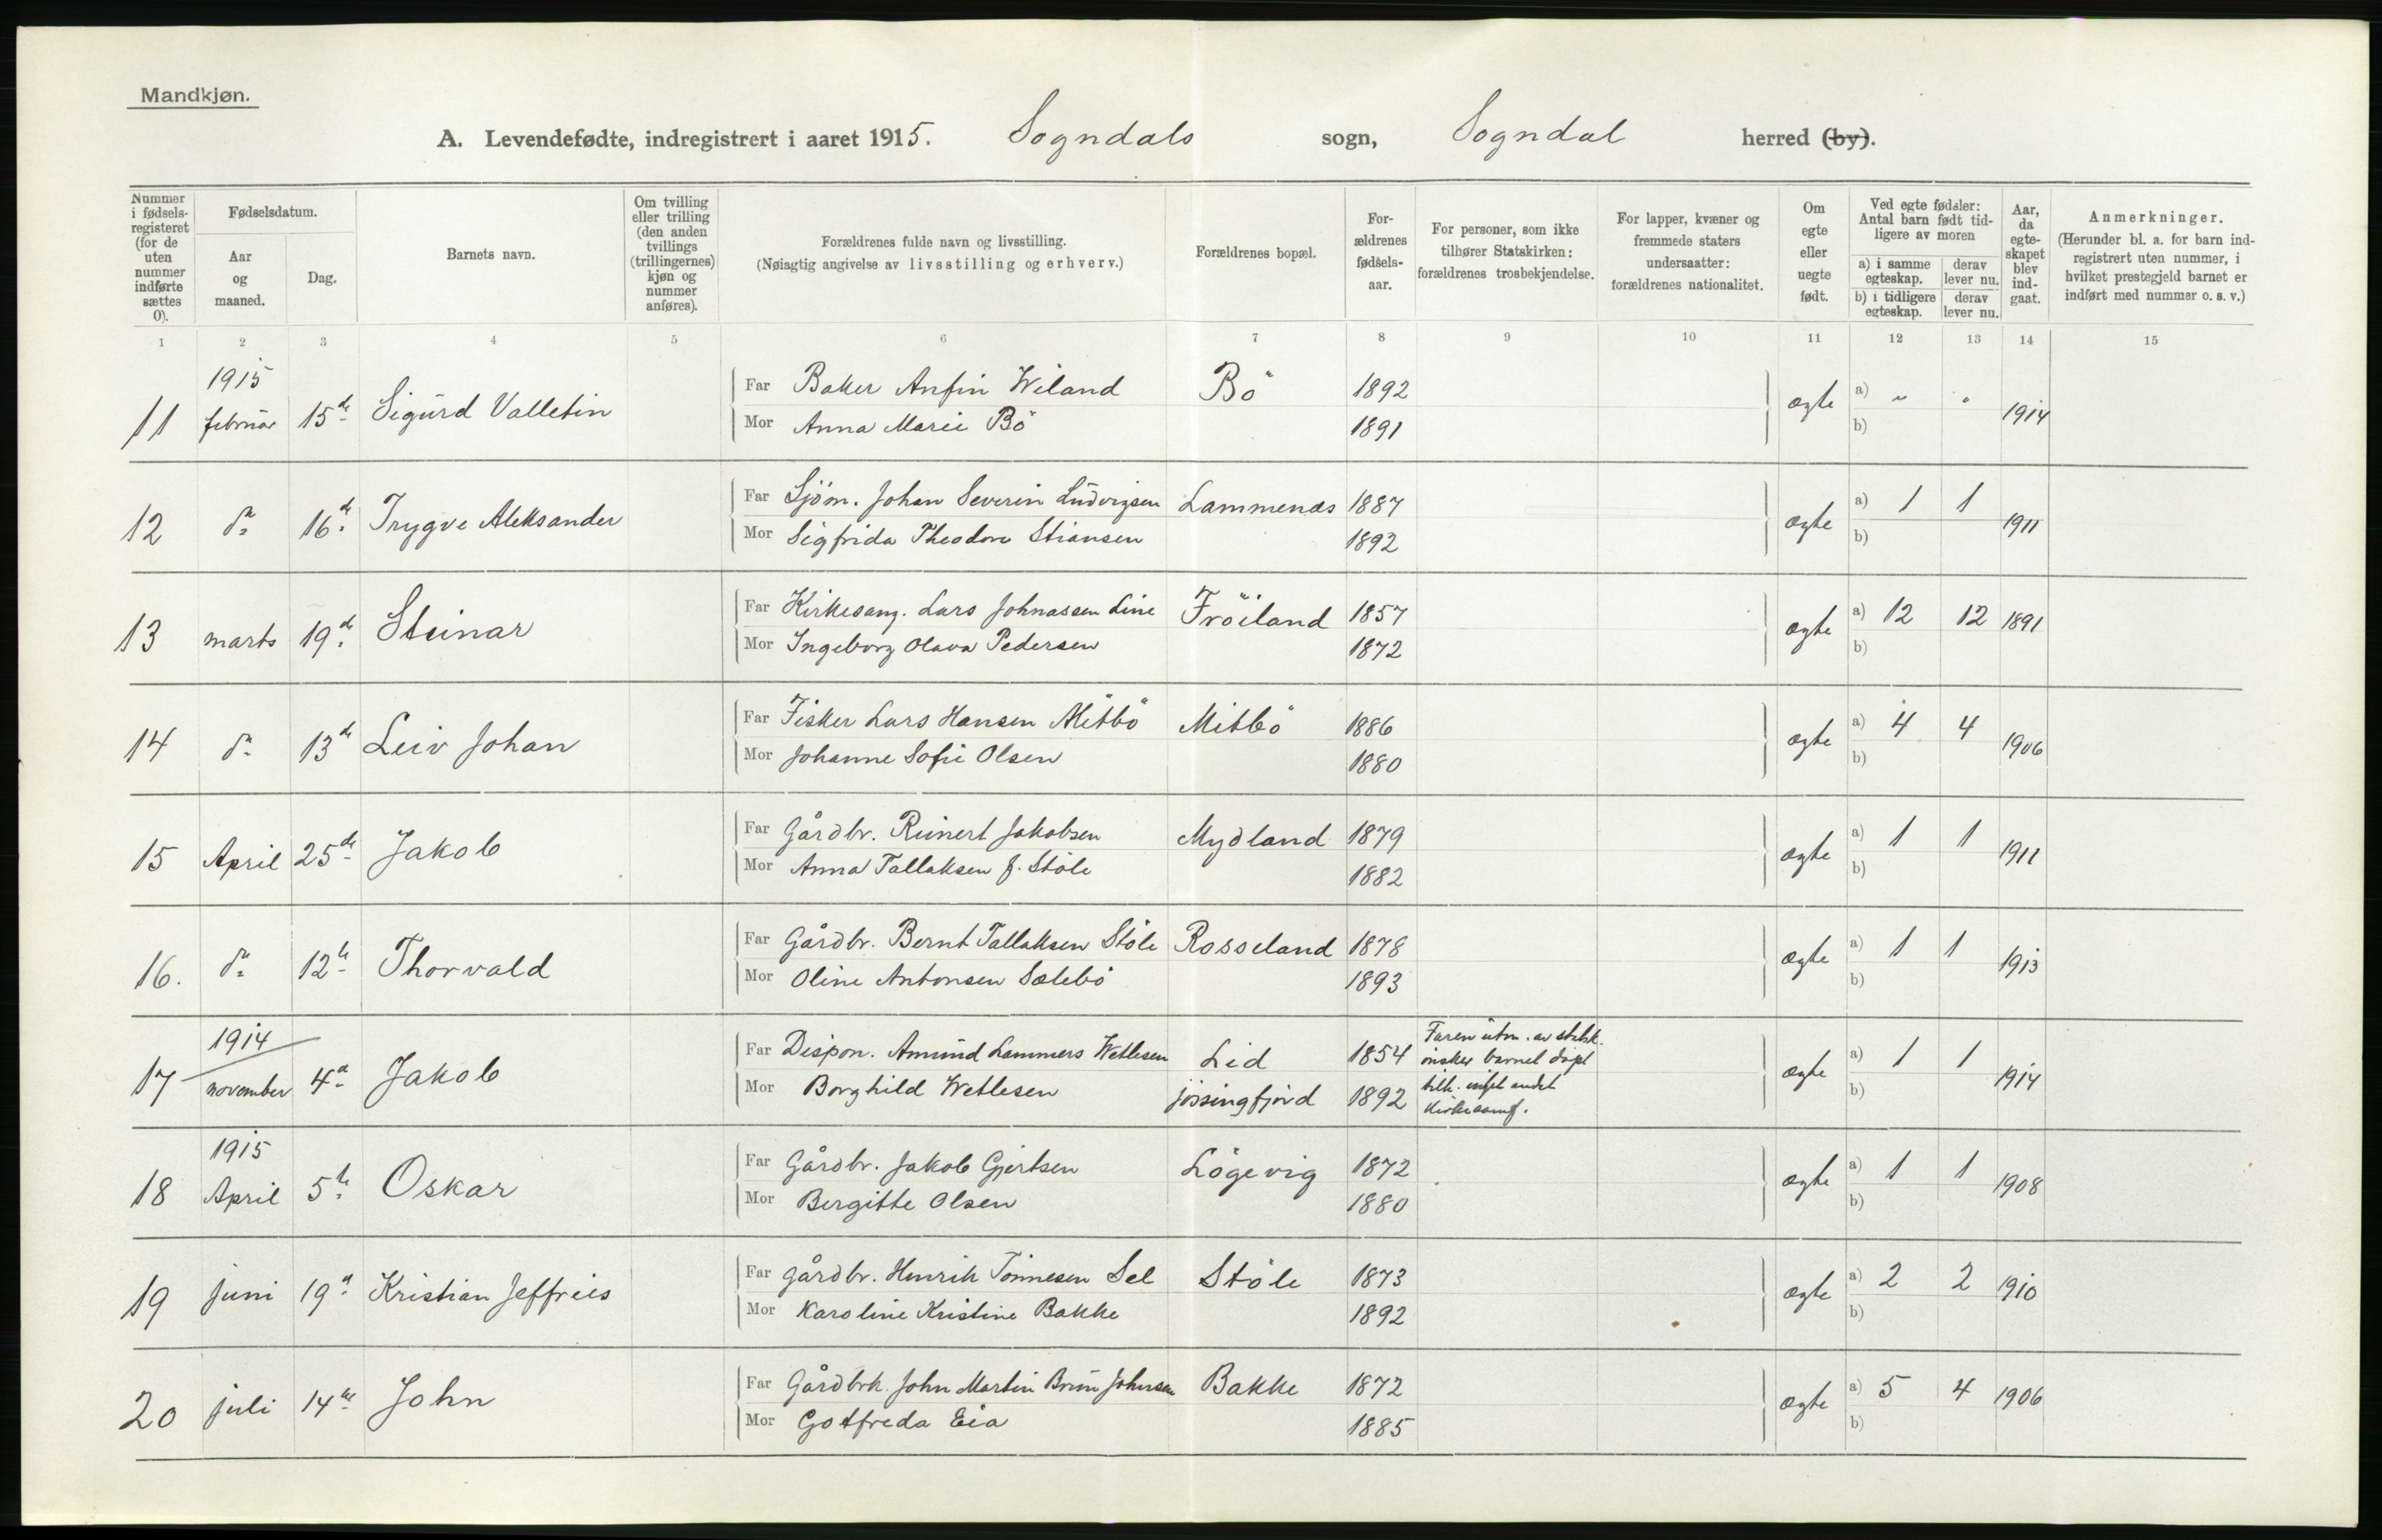 Mandkjøn.
A. Levendefødte, indregistrert i aaret 1915. Sogndals sogn, Sogndal herred (by).
Nummer i fødselsregisteret (for de uten nummer indførte sættes 0).
Fødselsdatum.
Aar og maaned.
Dag.
Barnets navn.
Om tvilling eller trilling (den anden tvillings (trillingernes) kjøn og nummer anføres).
Forældrenes fulde navn og livsstilling.
(Nøiagtig angivelse av livsstilling og erhverv.)
Forældrenes bopæl.
Forældrenes fødselsaar.
For personer, som ikke tilhører Statskirken: forældrenes trosbekjendelse.
For lapper, kvæner og fremmede staters undersaatter: forældrenes nationalitet.
Om egte eller uegte født.
Ved egte fødsler: Antal barn født tidligere av moren
a) i samme egteskap. derav lever nu.
b) i tidligere egteskap. derav lever nu.
Aar, da egteskapet blev indgaat.
Anmerkninger.
(Herunder bl. a. for barn indregistrert uten nummer, i hvilket prestegjeld barnet er indført med nummer o. s. v.)
1 2 3 4 5 6 7 8 9 10 11 12 13 14 15
1915
11 februar 15de Sigurd Valletin Far Baker Anfin Wiland Bö 1892 ægte a) " " 1914
Mor Anna Marie Bö 1891 b)
12 do 16de Trygve Aleksander Far Sjöm. Johan Severin Ludvigsen Lammenæs 1887 ægte a) 1 1 1911
Mor Sigfrida Theodora Stiansen 1892 b)
13 marts 19de Steinar Far Kirkesang. Lars Johnassen Line Fröiland 1857 ægte a) 12 12 1891
Mor Ingeborg Olava Pedersen 1872 b)
14 do 13de Leiv Johan Far Fisker Lars Hansen Mitbö Mitbö 1886 ægte a) 4 4 1906
Mor Johanne Sofie Olsen 1880 b)
15 April 25de Jakob Far Gårdbr. Reinert Jakobsen Mydland 1879 ægte a) 1 1 1911
Mor Anna Tallaksen f. Stöle 1882 b)
16. do 12te Thorvald Far Gårdbr. Bernt Tallaksen Stöle Rosseland 1878 ægte a) 1 1 1913
Mor Oline Antonsen Sælebö 1893 b)
1914
17 november 4de Jakob Far Dispon. Amund Lammers Wetlesen Lid 1854 Faren utm. av statsk. önsker barnet döpt ægte a) 1 1 1914
Mor Borghild Wetlesen jössingfjord 1892 tilh. intet andet kirkesamf. b)
1915
18 April 5te Oskar Far Gårdbr. Jakob Gjertsen Lögevig 1872 ægte a) 1 1 1908
Mor Bergitte Olsen 1880 b)
19 juni 19de Kristian Jeffreis Far Gårdbr. Henrik Tönnesen Sel Stöle 1873 ægte a) 2 2 1910
Mor Karoline Kristine Bakke 1892 b)
20 juli 14de John Far Gårdbrk. John Martin Brun Johnsen Bakke 1872 ægte a) 5 4 1906
Mor Gotfreda Eia 1885 b)